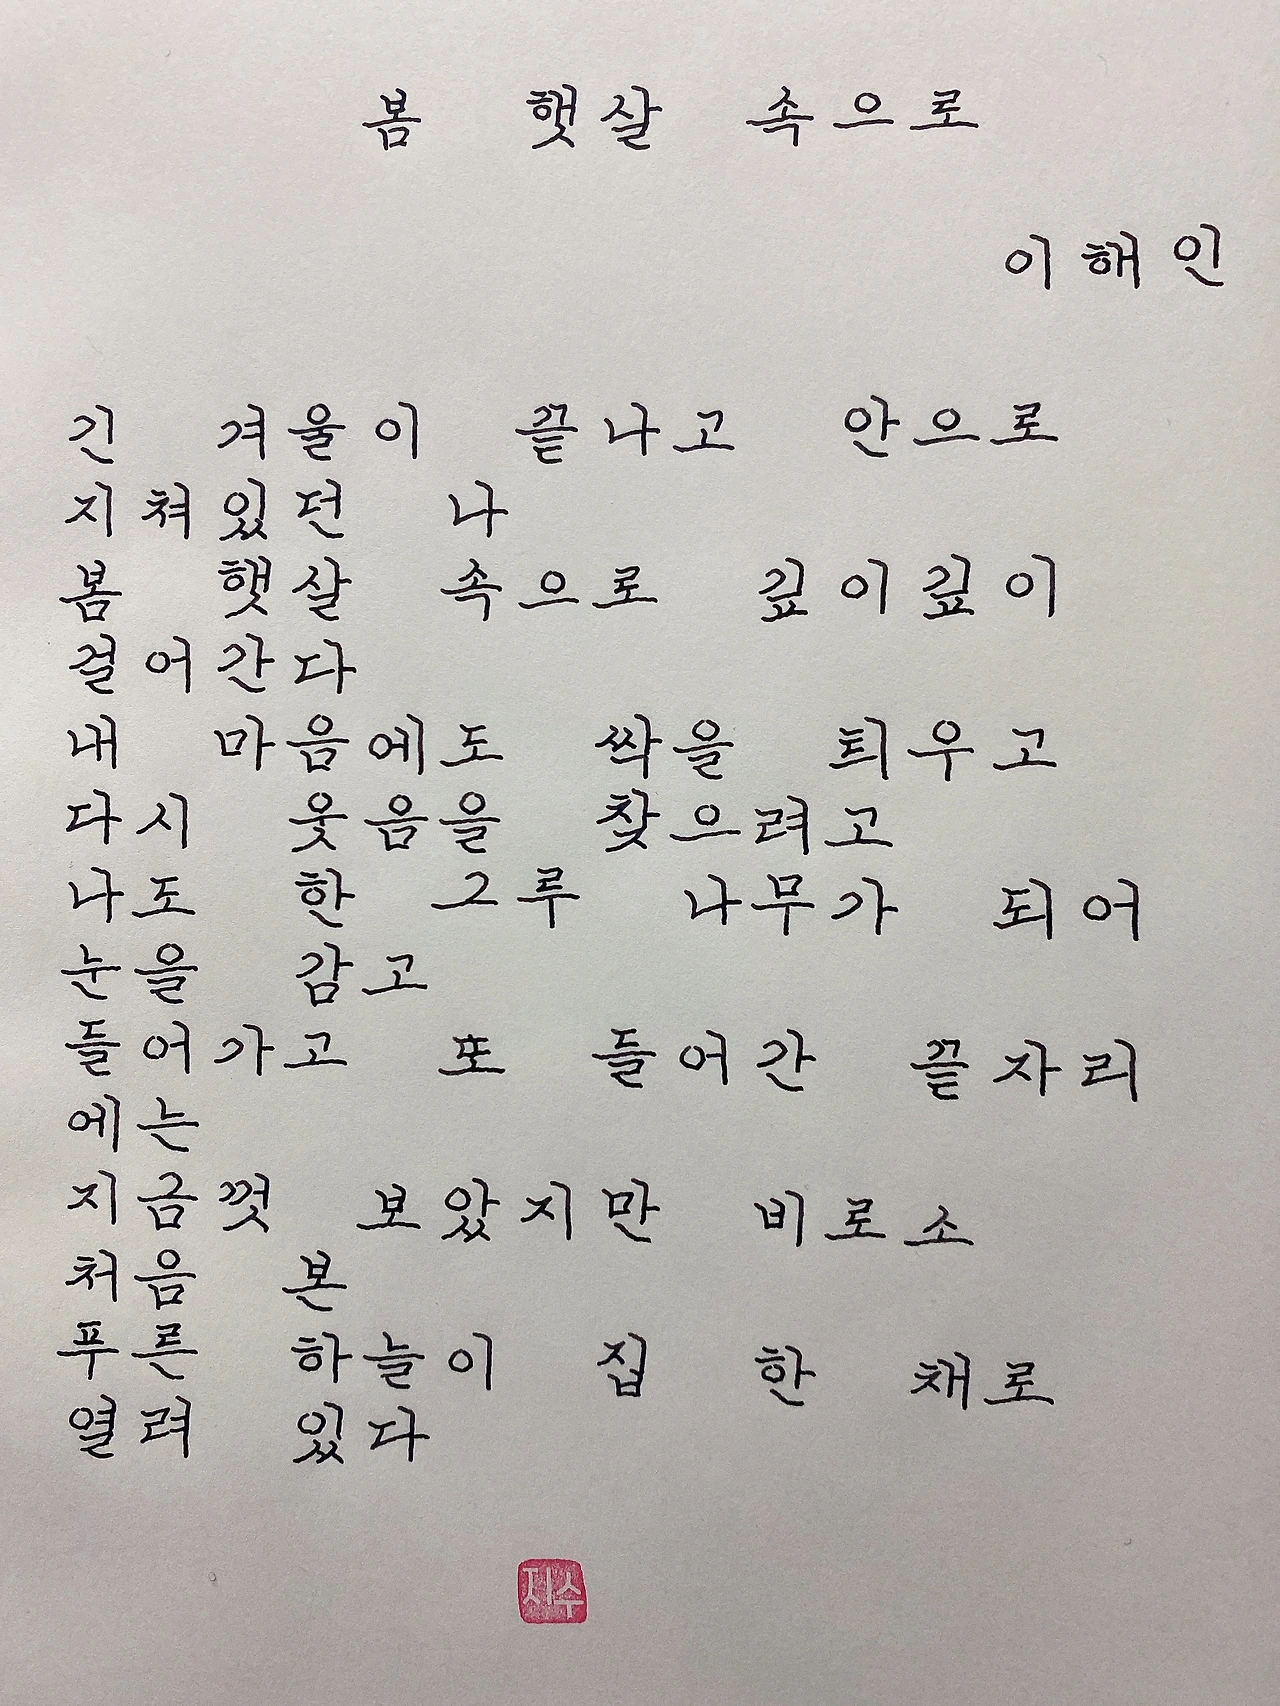 봄 햇살 속으로
이해인
긴 겨울이 끝나고 안으로
지쳐있던 나
봄 햇살 속으로 깊이깊이
걸어간다
내 마음에도 싹을 틔우고
다시 웃음을 찾으려고
나도 한 그루 나무가 되어
눈을 감고
들어가고 또 들어간 끝자리
에는
지금껏 보았지만 비로소
처음 본
푸른 하늘이 집 한 채로
열려 있다
지수